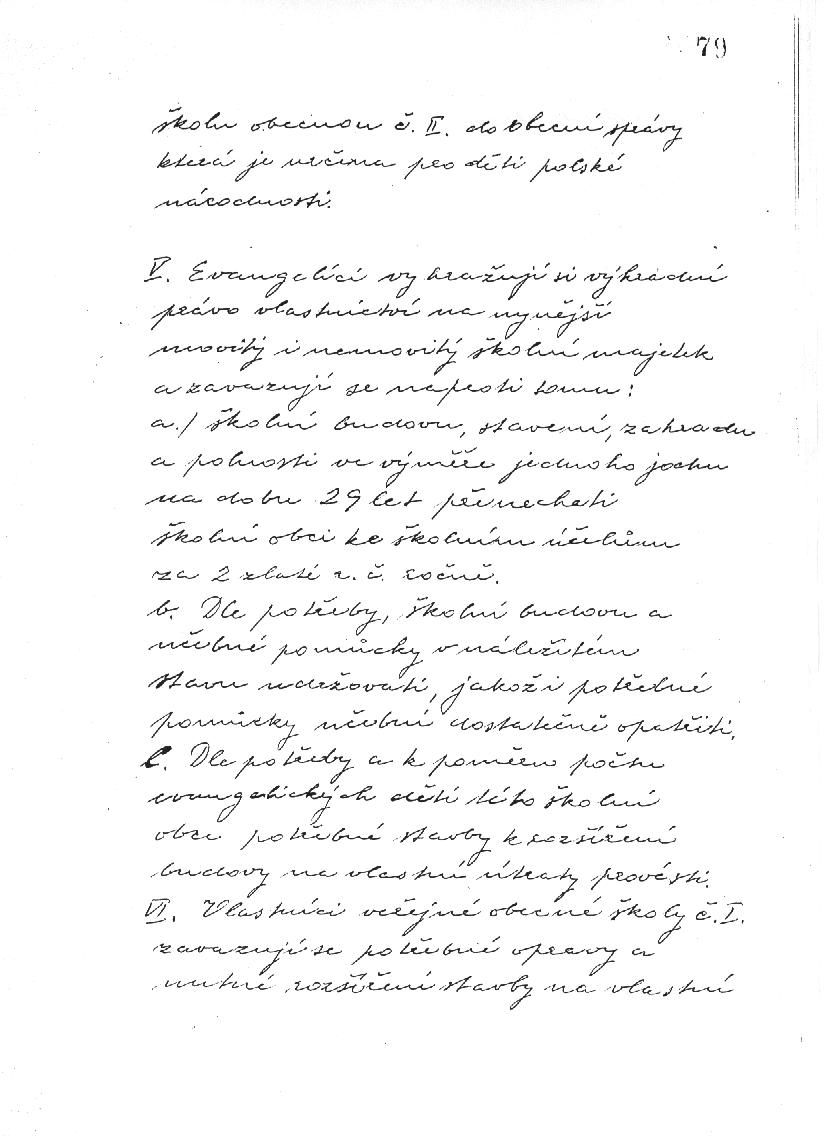 79
školu obecnou č. II. do obecní správy
která je určena pro děti polské
národnosti.
V. Evangelíci vyhražují si výhradní
právo vlastnictví na nynější
movitý i nemovitý školní majetek
a zavazují se naproti tomu:
a./ školní budovu, stavení, zahradu
a polnosti ve výměře jednoho jochu
na dobu 29 let přenechati
školní obci ke školním účelům
za 2 zlaté r. č. ročně.
b. Dle potřeby, školní budovu a
učebné pomůcky v náležitém
stavu udržovati, jakož i potřebné
pomůcky učební dostatečně opatřiti.
C. Dle potřeby a k poměru počtu
evangelických dětí této školní
obce potřebné stavby k rozšíření
budovy na vlastní útraty provésti.
VI. Vlastníci veřejné obecné školy č. I.
zavazují se potřebné opravy a
nutné rozšíření stavby na vlastní